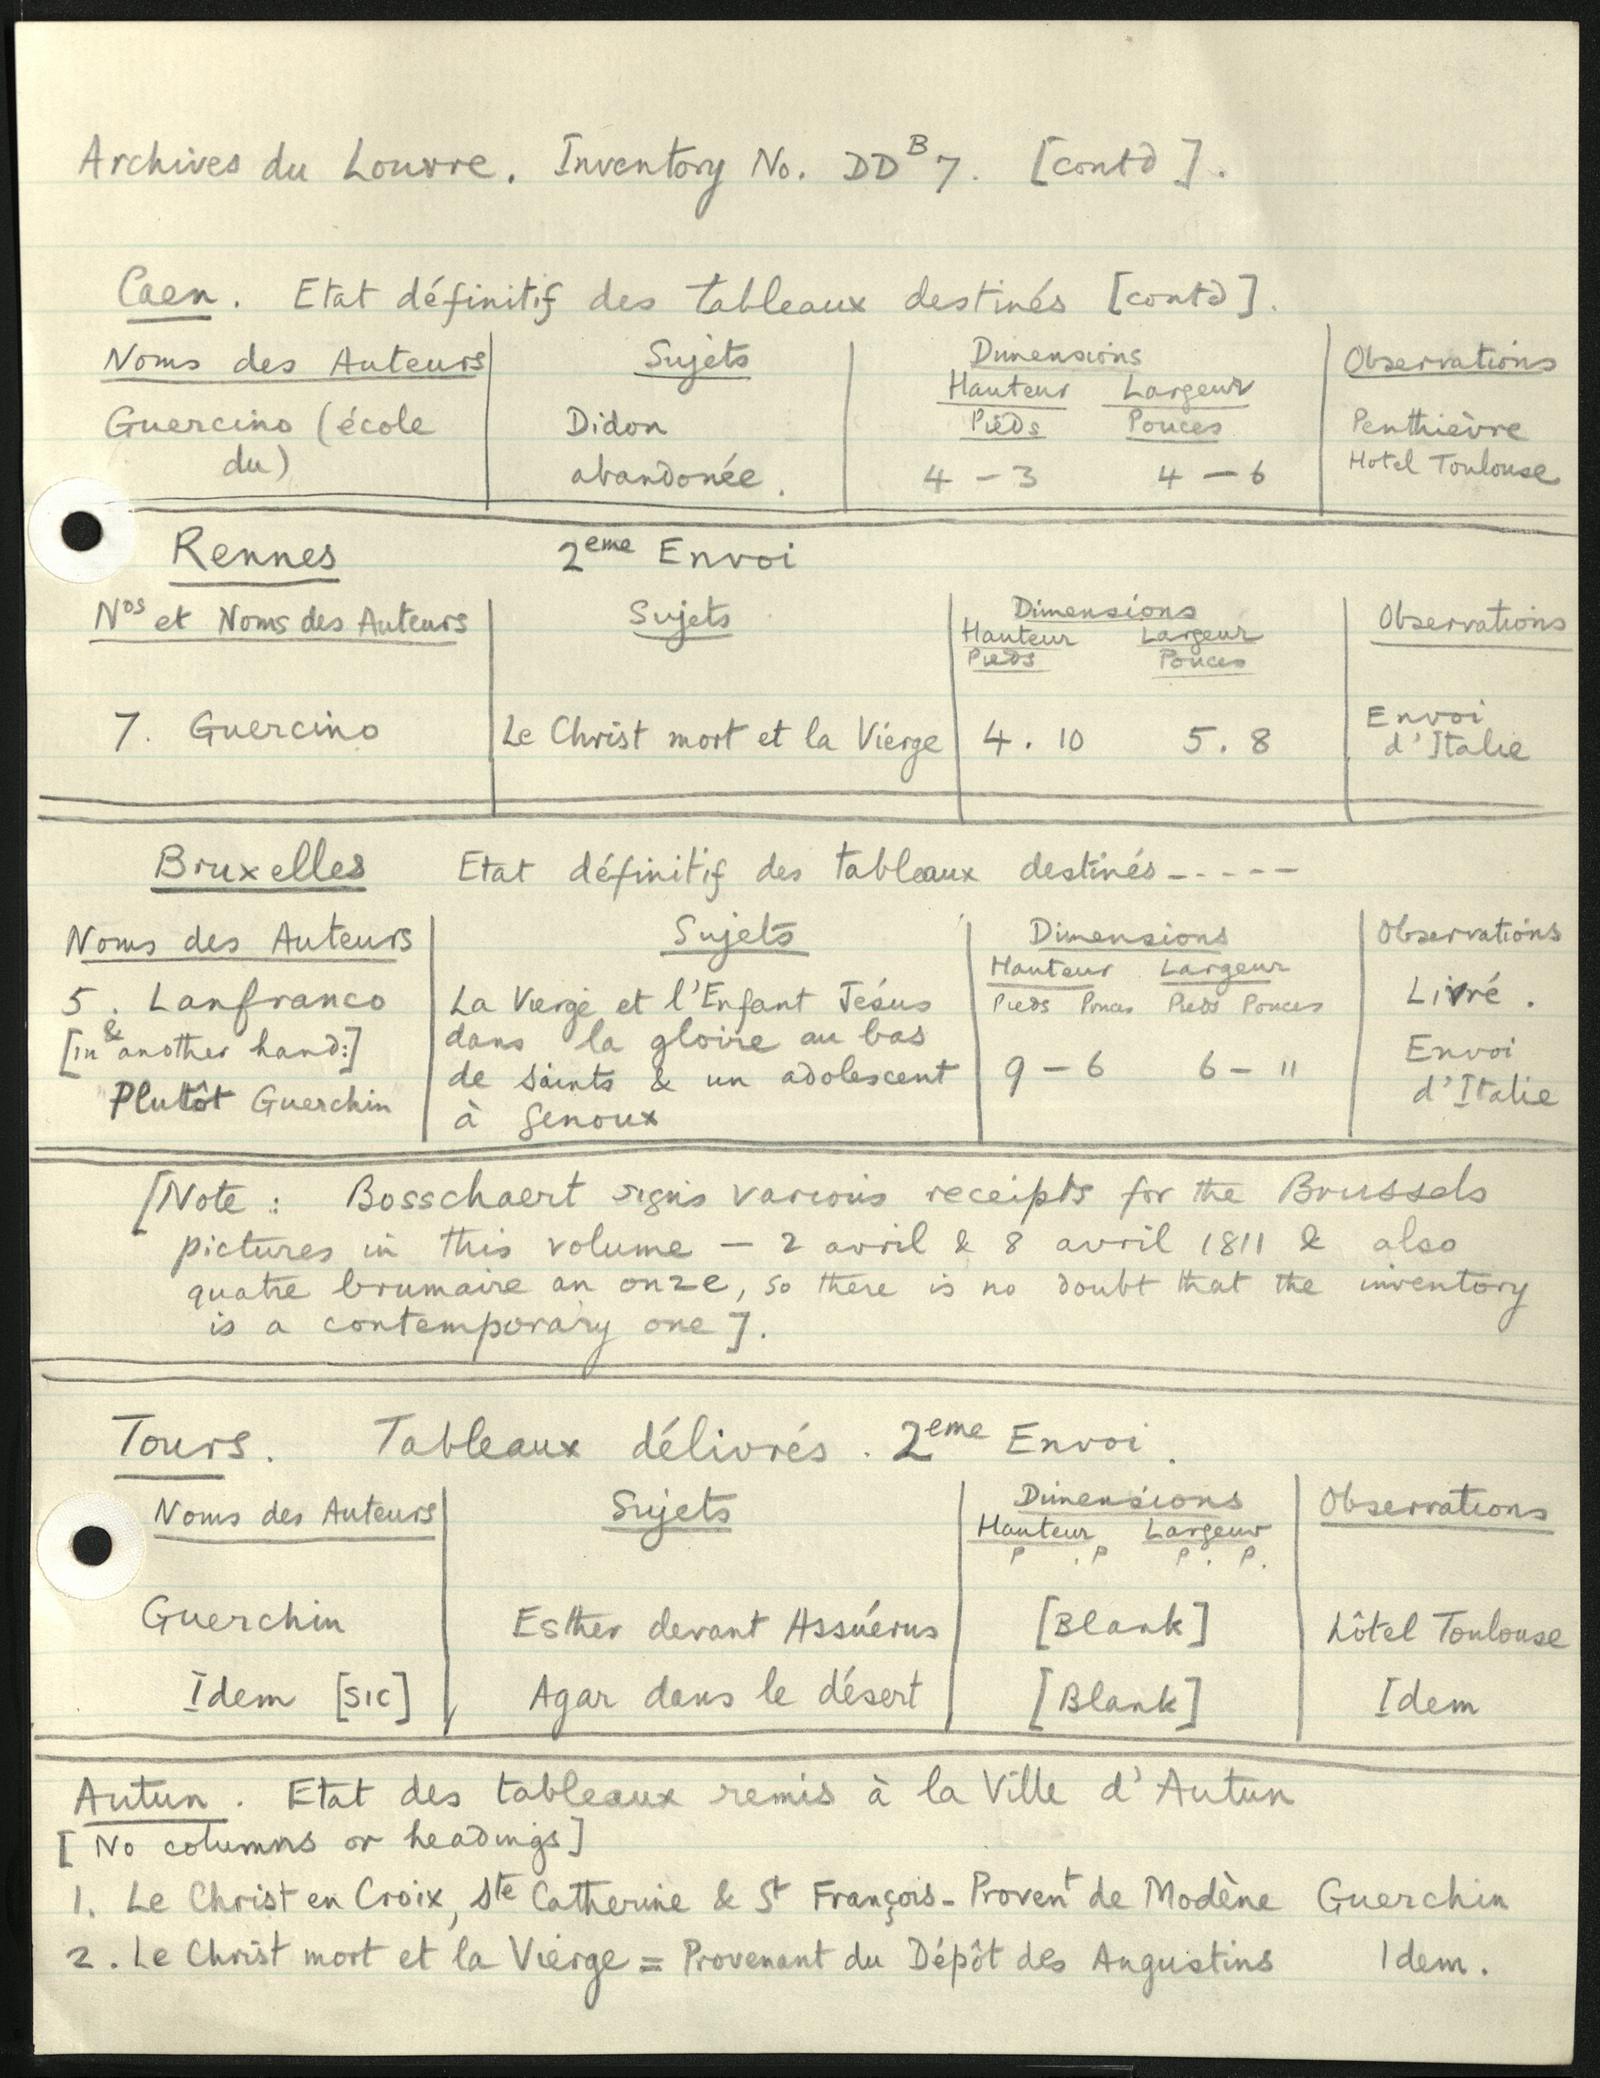 Archives du Louvre. Inventory No. DD^B 7. [contd].
Caen. Etat définitif des tableaux destinés [contd].
Noms des Auteurs Sujets Dimensions Observations
Hauteur Largeur
Pieds Pouces
Guercino (école Didon Penthièvre
du) abandonée. 4 - 3 4 - 6 Hotel Toulouse
Rennes 2eme Envoi
Nos et Noms des Auteurs Sujets Dimensions Observations
Hauteur Largeur
Pieds Pouces
7. Guercino Le Christ mort et la Vierge 4. 10 5. 8 Envoi
d'Italie
Bruxelles Etat définitif des tableaux destinés - - - - -
Noms des Auteurs Sujets Dimensions Observations
Hauteur Largeur
5. Lanfranco La Vierge et l'Enfant Jésus Pieds Pouces Pieds Pouces Livré.
& [in another hand:] dans la gloire au bas
de saints & un adolescent 9 - 6 6 - 11 Envoi
Plutôt Guerchin à genoux d'Italie
[Note: Bosschaert signs various receipts for the Brussels
pictures in this volume - 2 avril & 8 avril 1811 & also
quatre brumaire an onze, so there is no doubt that the inventory
is a contemporary one].
Tours. Tableaux délivrés. 2eme Envoi.
Noms des Auteurs Sujets Dimensions Observations
Hauteur Largeur
P . P P. P.
Guerchin Esther devant Assuérus [Blank] hôtel Toulouse
Idem [sic] Agar dans le désert [Blank] Idem
Autun. Etat des tableaux remis à la Ville d'Autun
[No columns or headings]
1. Le Christ en Croix, Ste Catherine & St François - Provent de Modène Guerchin
2. Le Christ mort et la Vierge = Provenant du Dépôt des Augustins Idem.